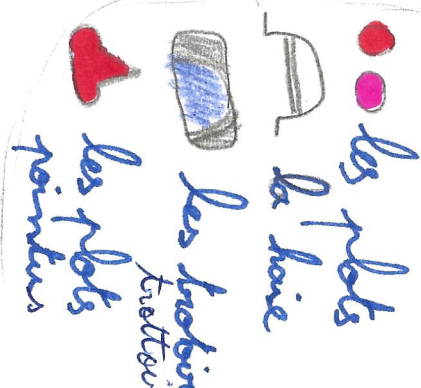 les plots
la haie
les trotoir
trottoi
les plots
pointus